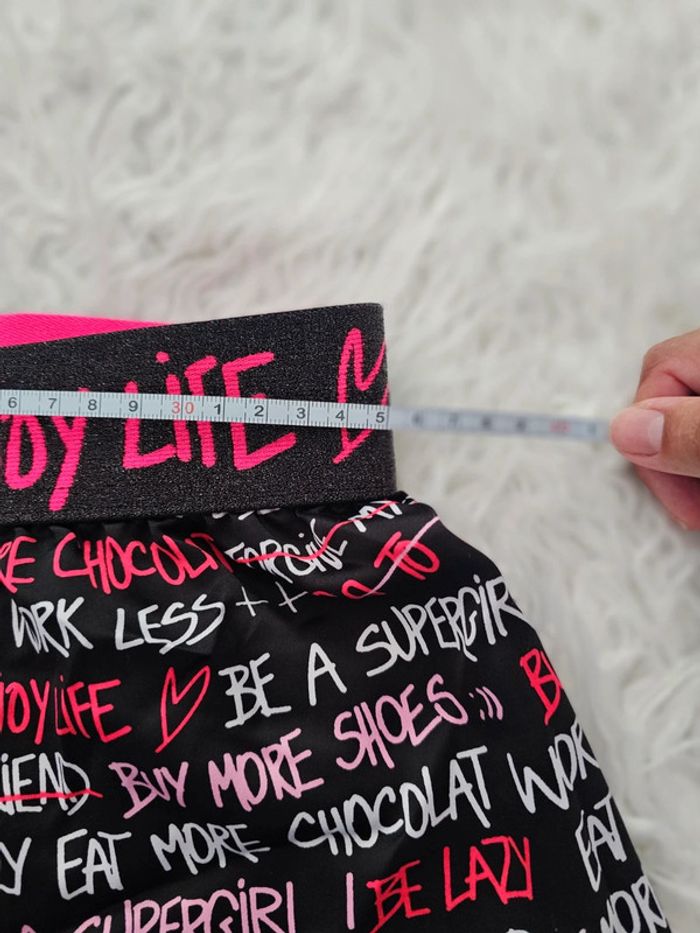 OY LIFE
6 7 8 9 30 1 2 3 4 5 6 7 8 9
RE CHOCOLAT FORGIVE MY
WORK LESS + + TO
JOY LIFE BE A SUPERGIRL
BUY MORE SHOES :))
Y EAT MORE CHOCOLAT WOR
SUPERGIRL I BE LAZY EAT
MOR